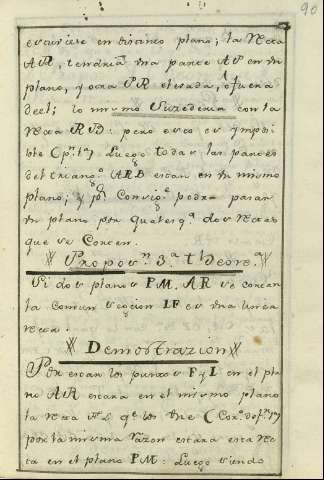 90
estuviese en distinto plano; la recta
AR, tendria una parte AP en un
plano, y otra PR elevada, ó fuera
de el; lo mismo Suzederia con la
recta RB: pero esto es ymposi-
ble (Pn. 1a) Luego todas las partes
del triango. ARB estan en un mismo
plano; y por Consige. podra pasar
un plano por qualesqa. dos rectas
que se Corten.
Proposn. 3a. theorea.
Si dos planos PM. AR se cortan
la comun seccion IF es una linea
recta.
Demostrazion
Por estar los puntos F y I en el pla
no AR estara en el mismo plano
la recta qe. los une (Coro.
por la misma razon estara esta rec
ta en el plano PM: Luego siendo